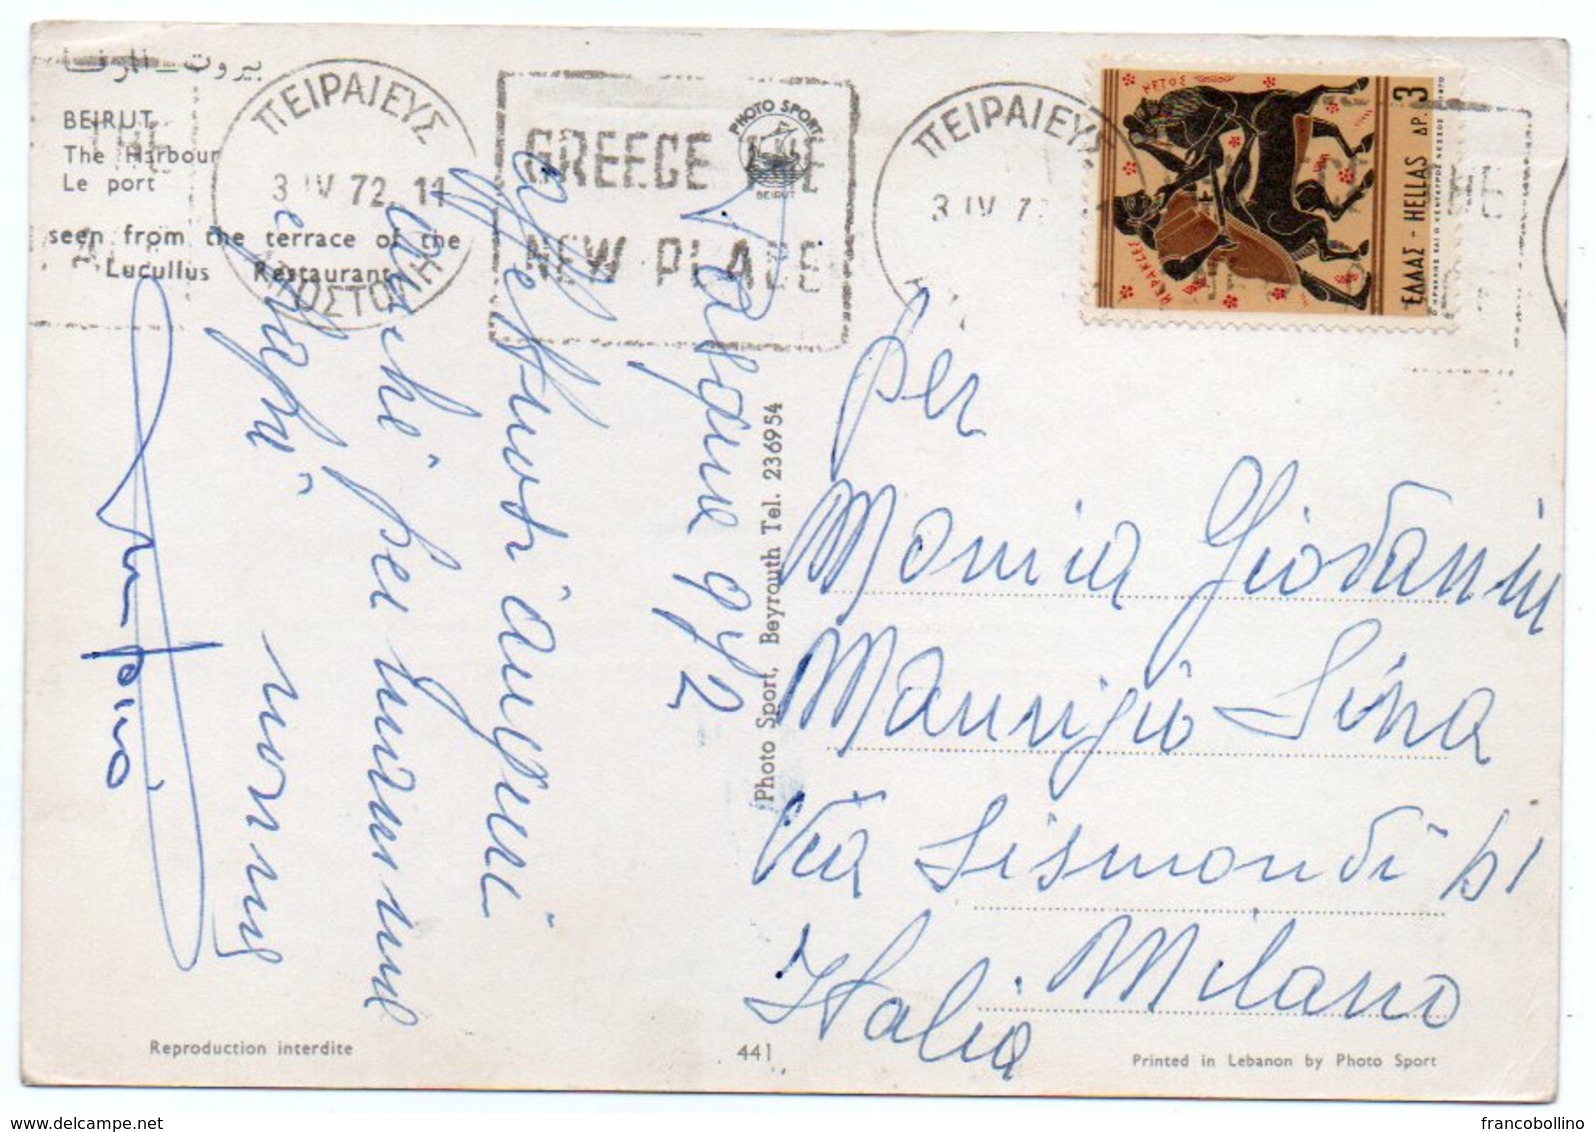 بيروت - المرفأ
BEIRUT
The Harbour
Le port
seen from the terrace of the
Lucullus Restaurant
ΠΕΙΡΑΙΕΥΣ
3 IV 72 11
ΑΠΟΣΤΟΛΗ
GREECE THE
NEW PLACE
PHOTO SPORT
BEIRUT
ΠΕΙΡΑΙΕΥΣ
3 IV 7
ΝΕΤΟΣ
ΗΕΡΑΚΛΕΣ
ΕΛΛΑΣ - HELLAS ΔΡ. 3
Ο ΗΡΑΚΛΗΣ ΚΑΙ Ο ΚΕΝΤΑΥΡΟΣ ΝΕΣΣΟΣ 1970
Pasqua 972
affettuosi auguri
anche per mamma
e papà
nonno
Photo Sport, Beyrouth Tel. 236954
per
Monica Giovanni
Maurizio Sina
Via Sismondi 61
Milano
Italia
Reproduction interdite
441
Printed in Lebanon by Photo Sport
francobollino